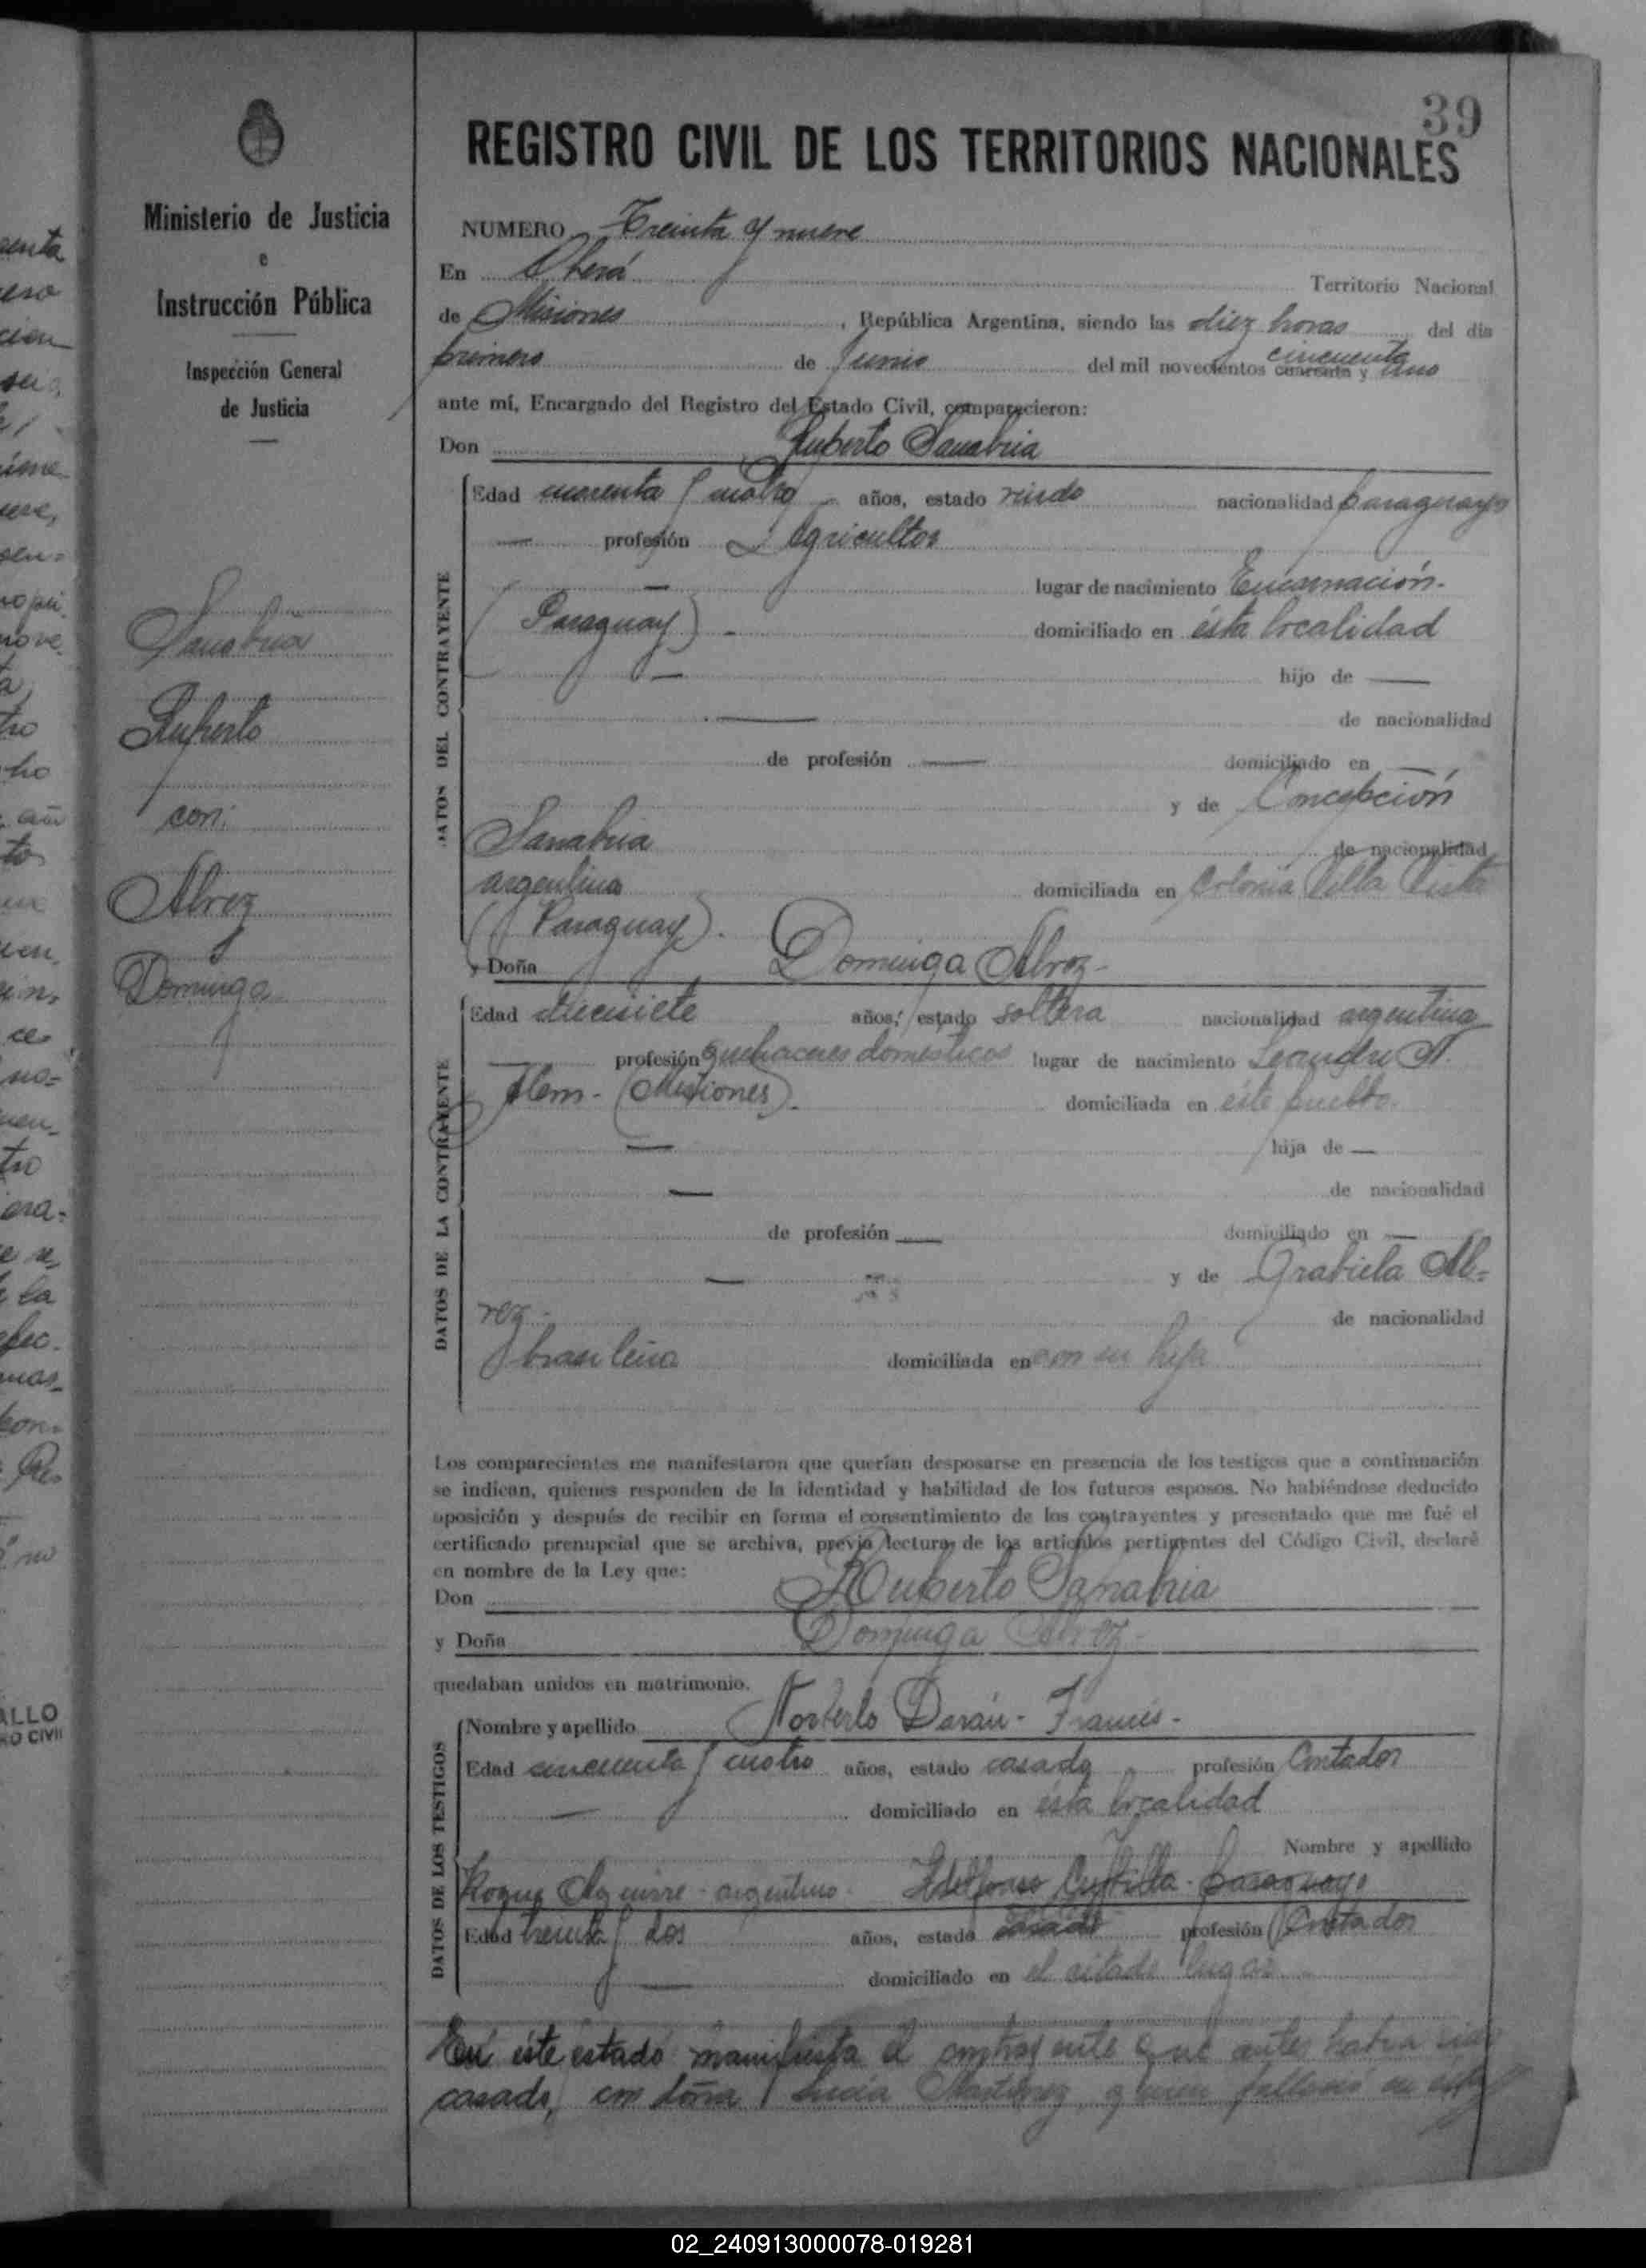 39
REGISTRO CIVIL DE LOS TERRITORIOS NACIONALES
Ministerio de Justicia
e
Instrucción Pública
Inspección General
de Justicia
Sanabria
Ruperto
con:
Alvez
Dominga
NUMERO Treinta y nueve
En Oberá Territorio Nacional
de Misiones, República Argentina, siendo las diez horas del día
primero de Junio del mil novecientos cuarenta cincuenta y uno
ante mí, Encargado del Registro del Estado Civil, comparecieron:
Don Ruperto Sanabria
DATOS DEL CONTRAYENTE
Edad cuarenta y cuatro años, estado viudo nacionalidad paraguayo
— profesión Agricultor
— lugar de nacimiento Encarnación.
(Paraguay) - domiciliado en ésta localidad
— hijo de —
— de nacionalidad
de profesión — domiciliado en —
y de Concepción
Sanabria de nacionalidad
argentina domiciliada en Colonia Bella Vista
(Paraguay).
y Doña Dominga Alvez-
DATOS DE LA CONTRAYENTE
Edad diecisiete años, estado soltera nacionalidad argentina
— profesión quehaceres domésticos lugar de nacimiento Leandro N.
Alem - (Misiones). domiciliada en éste pueblo.
— hija de —
— de nacionalidad
de profesión — domiciliado en —
— y de Grabiela Al=
vez- de nacionalidad
brasilera domiciliada en con su hija
Los comparecientes me manifestaron que querían desposarse en presencia de los testigos que a continuación
se indican, quienes responden de la identidad y habilidad de los futuros esposos. No habiéndose deducido
oposición y después de recibir en forma el consentimiento de los contrayentes y presentado que me fué el
certificado prenupcial que se archiva, previa lectura de los artículos pertinentes del Código Civil, declaré
en nombre de la Ley que:
Don Ruperto Sanabria
y Doña Dominga Alvez-
quedaban unidos en matrimonio.
DATOS DE LOS TESTIGOS
Nombre y apellido Norberto Darán - Francés -
Edad cincuenta y cuatro años, estado casado profesión Contador
— domiciliado en ésta localidad
Nombre y apellido
Roque Aguirre - argentino - Ildelfonso - paraguayo
Edad treinta y dos años, estado casado profesión Contador
— domiciliado en el citado lugar
En éste estado manifiesta el contrayente que antes había sido
casado, con doña Lucía Martínez quien falleció en
02_240913000078-019281